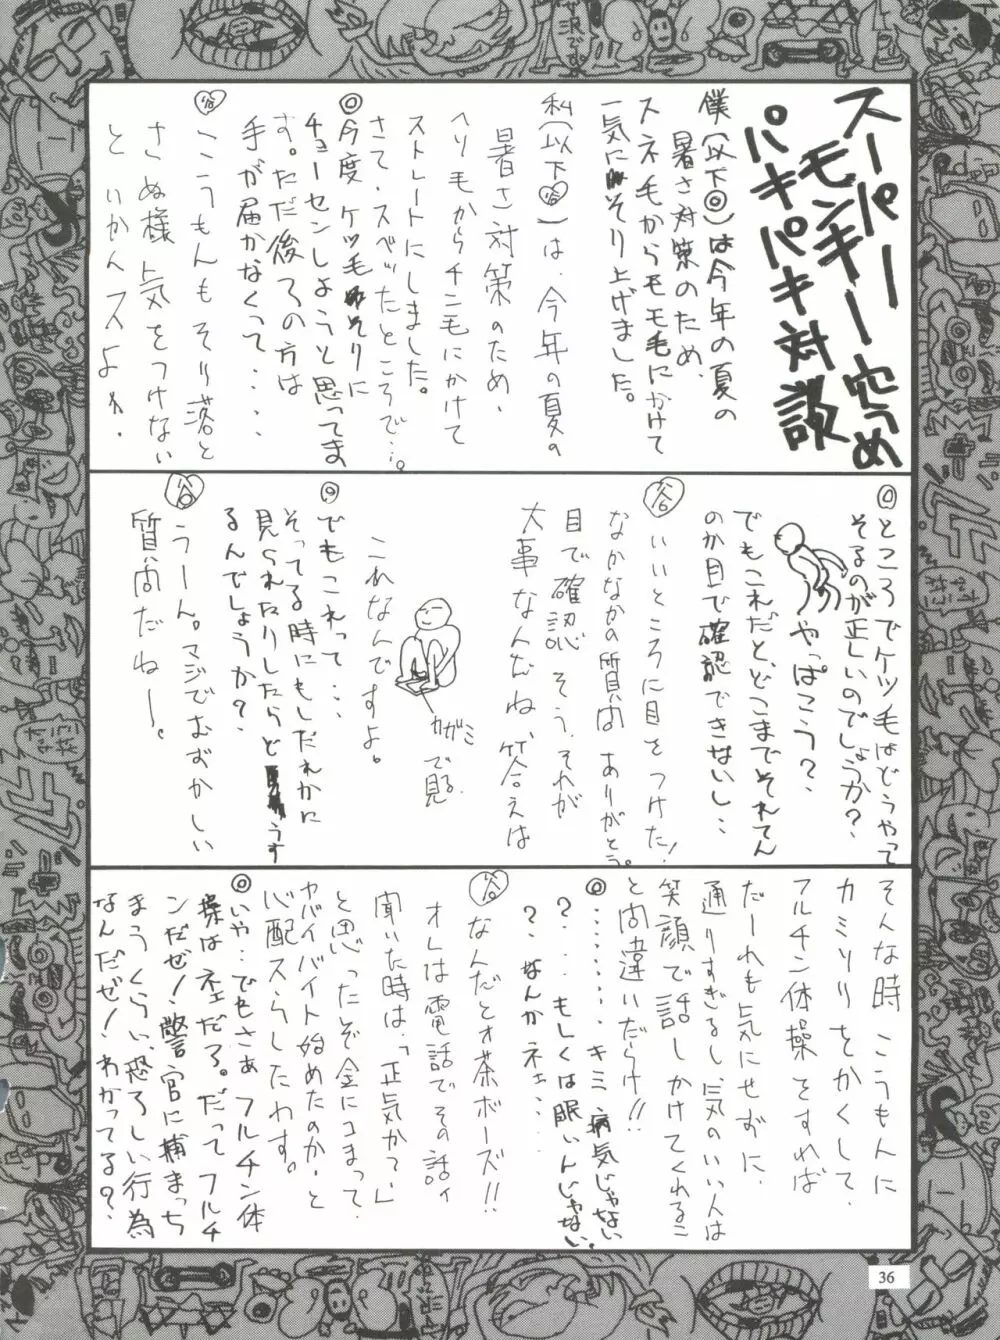 スーパーモンキー穴うめ
パキパキ対談
僕(以下◎)は今年の夏の
暑さ対策のため、
スネ毛からモモ毛にかけて
一気にそり上げました。
私(以下谷)は、今年の夏の
暑さ対策のため、
ヘソ毛からチン毛にかけて
ストレートにしました。
さて、スベッたところで…。
◎今度ケツ毛そりに
チョーセンしようと思ってま
す。ただ後ろの方は
手が届かなくって・・・・
谷こうもんもそり落と
さぬ様気をつけない
といかんスよ。
◎ところでケツ毛はどうやって
そるのが正しいのでしょうか?
やっぱこう?
でもこれだと、どこまでそれてん
のか目で確認できないし・・
谷いいところに目をつけた!
なかなかの質問ありがとう。
目で確認、そう、それが
大事なんだね、答えは
カガミで見る
これなんですよ。
◎でもこれって・・・
そってる時にもしだれかに
見られたりしたらどうす
るんでしょうか?
谷うーん。マジでむずかしい
質問だねー。
そんな時こうもんに
カミソリをかくして、
フルチン体操をすれば
だーれも気にせずに、
通りすぎるし気のいい人は
笑顔で話しかけてくれるこ
と間違いだらけ!!
◎・・・・・・・キミ病気じゃない
?・・・もしくは眠いんじゃない
?・なんかネェ・・・
谷なんだとォ茶ボーズ!!
オレは電話でその話ィ
聞いた時は、「正気かて」
と思ったぞ金にコまって、
ヤバイバイト始めたのか、と
心配スらしたわす。
◎いや…でもさぁフルチン体
操はネェだろ。だってフルチ
ンだぜ!警官に捕まっち
まうくらい、恐ろしい行為
なんだぜ!わかってる?
36